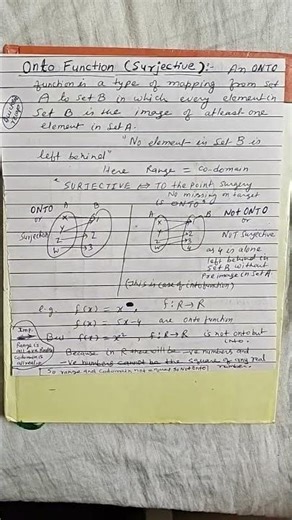 Onto Function (Surjective):- An ONTO
function is a type of mapping from set
A to set B in which every element in
Set B is the image of atleast one
element in Set A.
"No element in Set B is
left behind"
Here Range = co-domain
"SURJECTIVE ⇒ TO the point surgery
No missing on target
is ONTO"
ONTO
or
Surjective
A B
x
y
z
w
1
2
3
A B
x
y
z
w
1
2
3
4
NOT ONTO
or
NOT Surjective
as 4 is alone
left behind in
Set B without
Pre image in Set A.
(This is case of into function)
e.g. f(x) = x , f: R→R
f(x) = 5x-4 are onto function
Imp.
Range is
But f(x) = x², f: R→R is not onto but
into.
Because in R there will be -ve numbers and
-ve numbers cannot be the square of any real
number.
So range and codomain not equal so not onto